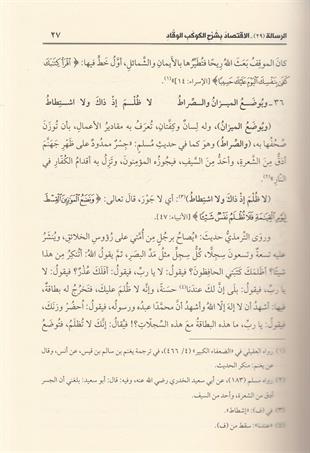 الرسالة (٢٩) ـ الاقتصاد بشرح الكوكب الوقاد ٢٧
كانَ الموقِفُ بَعَثَ اللهُ رِيحًا فتُطَيِّرُها بالأَيمانِ والشَّمائلِ، أوَّلُ خَطٍّ فيها: ﴿اقْرَأْ كِتَابَكَ
كَفَى بِنَفْسِكَ الْيَوْمَ عَلَيْكَ حَسِيبًا﴾ [الإسراء: ١٤]»(١).
٣٦ ـ ويُوضَعُ الميزانُ والصِّراطُ لا ظُلْمَ إذْ ذاكَ ولا اشتِطاطُ
(ويُوضَعُ الميزانُ)، وله لسانٌ وكِفَّتانِ، تُعرَفُ به مقاديرُ الأعمالِ، بأن تُوزَنَ
صُحُفُها به، (والصِّراطُ) وهو كما في حديثِ مسلمٍ: «جِسْرٌ ممدُودٌ على ظَهرِ جَهَنَّمَ
أدَقُّ مِنَ الشَّعرةِ، وأحَدُّ مِنَ السَّيفِ، فيَجُوزُه المؤمِنونَ، وتَزِلُّ به أقدامُ الكُفَّارِ في
النَّارِ»(٢).
(لا ظُلْمَ إذْ ذاكَ ولا اشتِطاطُ)(٣): أي لا جَوْرَ، قالَ تعالى: ﴿وَنَضَعُ الْمَوَازِينَ الْقِسْطَ
لِيَوْمِ الْقِيَامَةِ فَلَا تُظْلَمُ نَفْسٌ شَيْئًا﴾ [الأنبياء: ٤٧].
وروَى التِّرمذيُّ حديثَ: «يُصاحُ برجُلٍ مِن أُمَّتي على رُؤوسِ الخلائقِ، ويُنشَرُ
عليه تسعةٌ وتسعونَ سِجِلًّا، كُلُّ سِجِلٍّ مثلُ مَدِّ البَصَرِ، ثمَّ يقولُ اللهُ: أتُنكِرُ مِن هذا
شيئًا؟ أظلَمَكَ كَتَبَتي الحافِظونَ؟ فيقولُ: لا يا ربِّ، فيقولُ: أفَلَكَ عُذْرٌ؟ فيقولُ: لا
يا ربِّ، فيقولُ: بلَى إنَّ لكَ عندَنا(٤) حسَنةً، وإنَّه لا ظُلْمَ عليكَ، فتَخرُجُ له بطاقةٌ،
فيها: أشهَدُ أن لا إلهَ إلَّا اللهُ وأشهَدُ أنَّ محمَّدًا عبدُه ورسولُه، فيقولُ: احضُرْ وَزنَكَ،
فيقولُ: يا ربِّ، ما هذه البطاقةُ معَ هذه السِّجِلَّاتِ؟! فيُقالُ: إنَّكَ لا تُظلَمُ، فتُوضَعُ
(١) رواه العقيلي في «الضعفاء الكبير» (٤/ ٤٦٦)، في ترجمة يغنم بن سالم بن قيس، عن أنس، وقال
عن يغنم: منكر الحديث.
(٢) رواه مسلم (١٨٣)، عن أبي سعيد الخدري رضي الله عنه، وفيه: قال: أبو سعيد: بلغني أن الجسر
أدق من الشعرة، وأحد من السيف.
(٣) في (ف): «إشطاط».
(٤) «عندنا»: سقط من (ف).